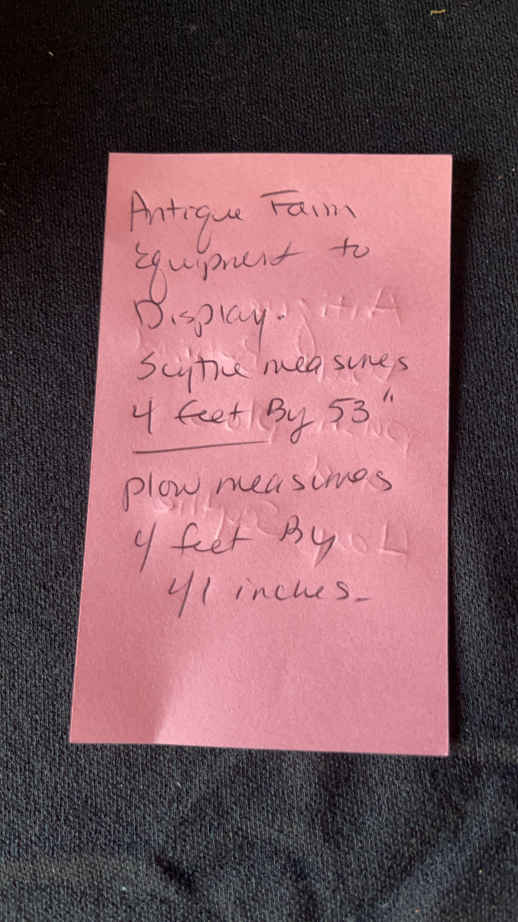 Antique Farm
Equipment to
Display.
Scythe measures
4 feet By 53"
plow measures
4 feet By
41 inches-